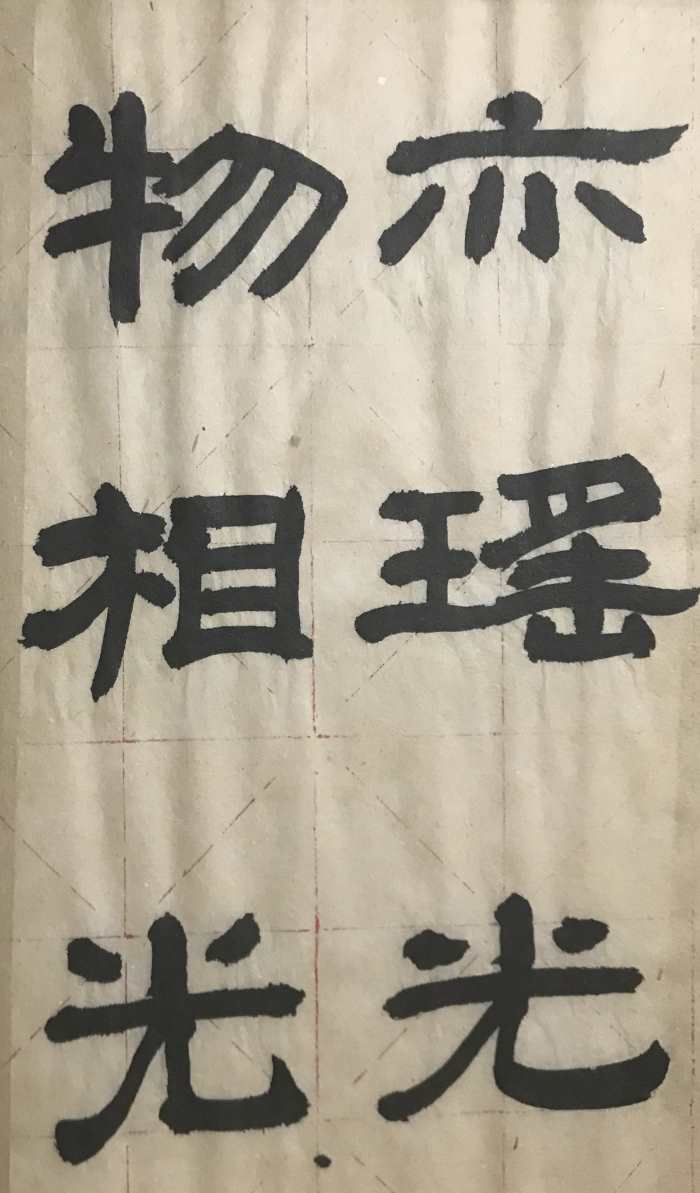 亦瑶光
物相光